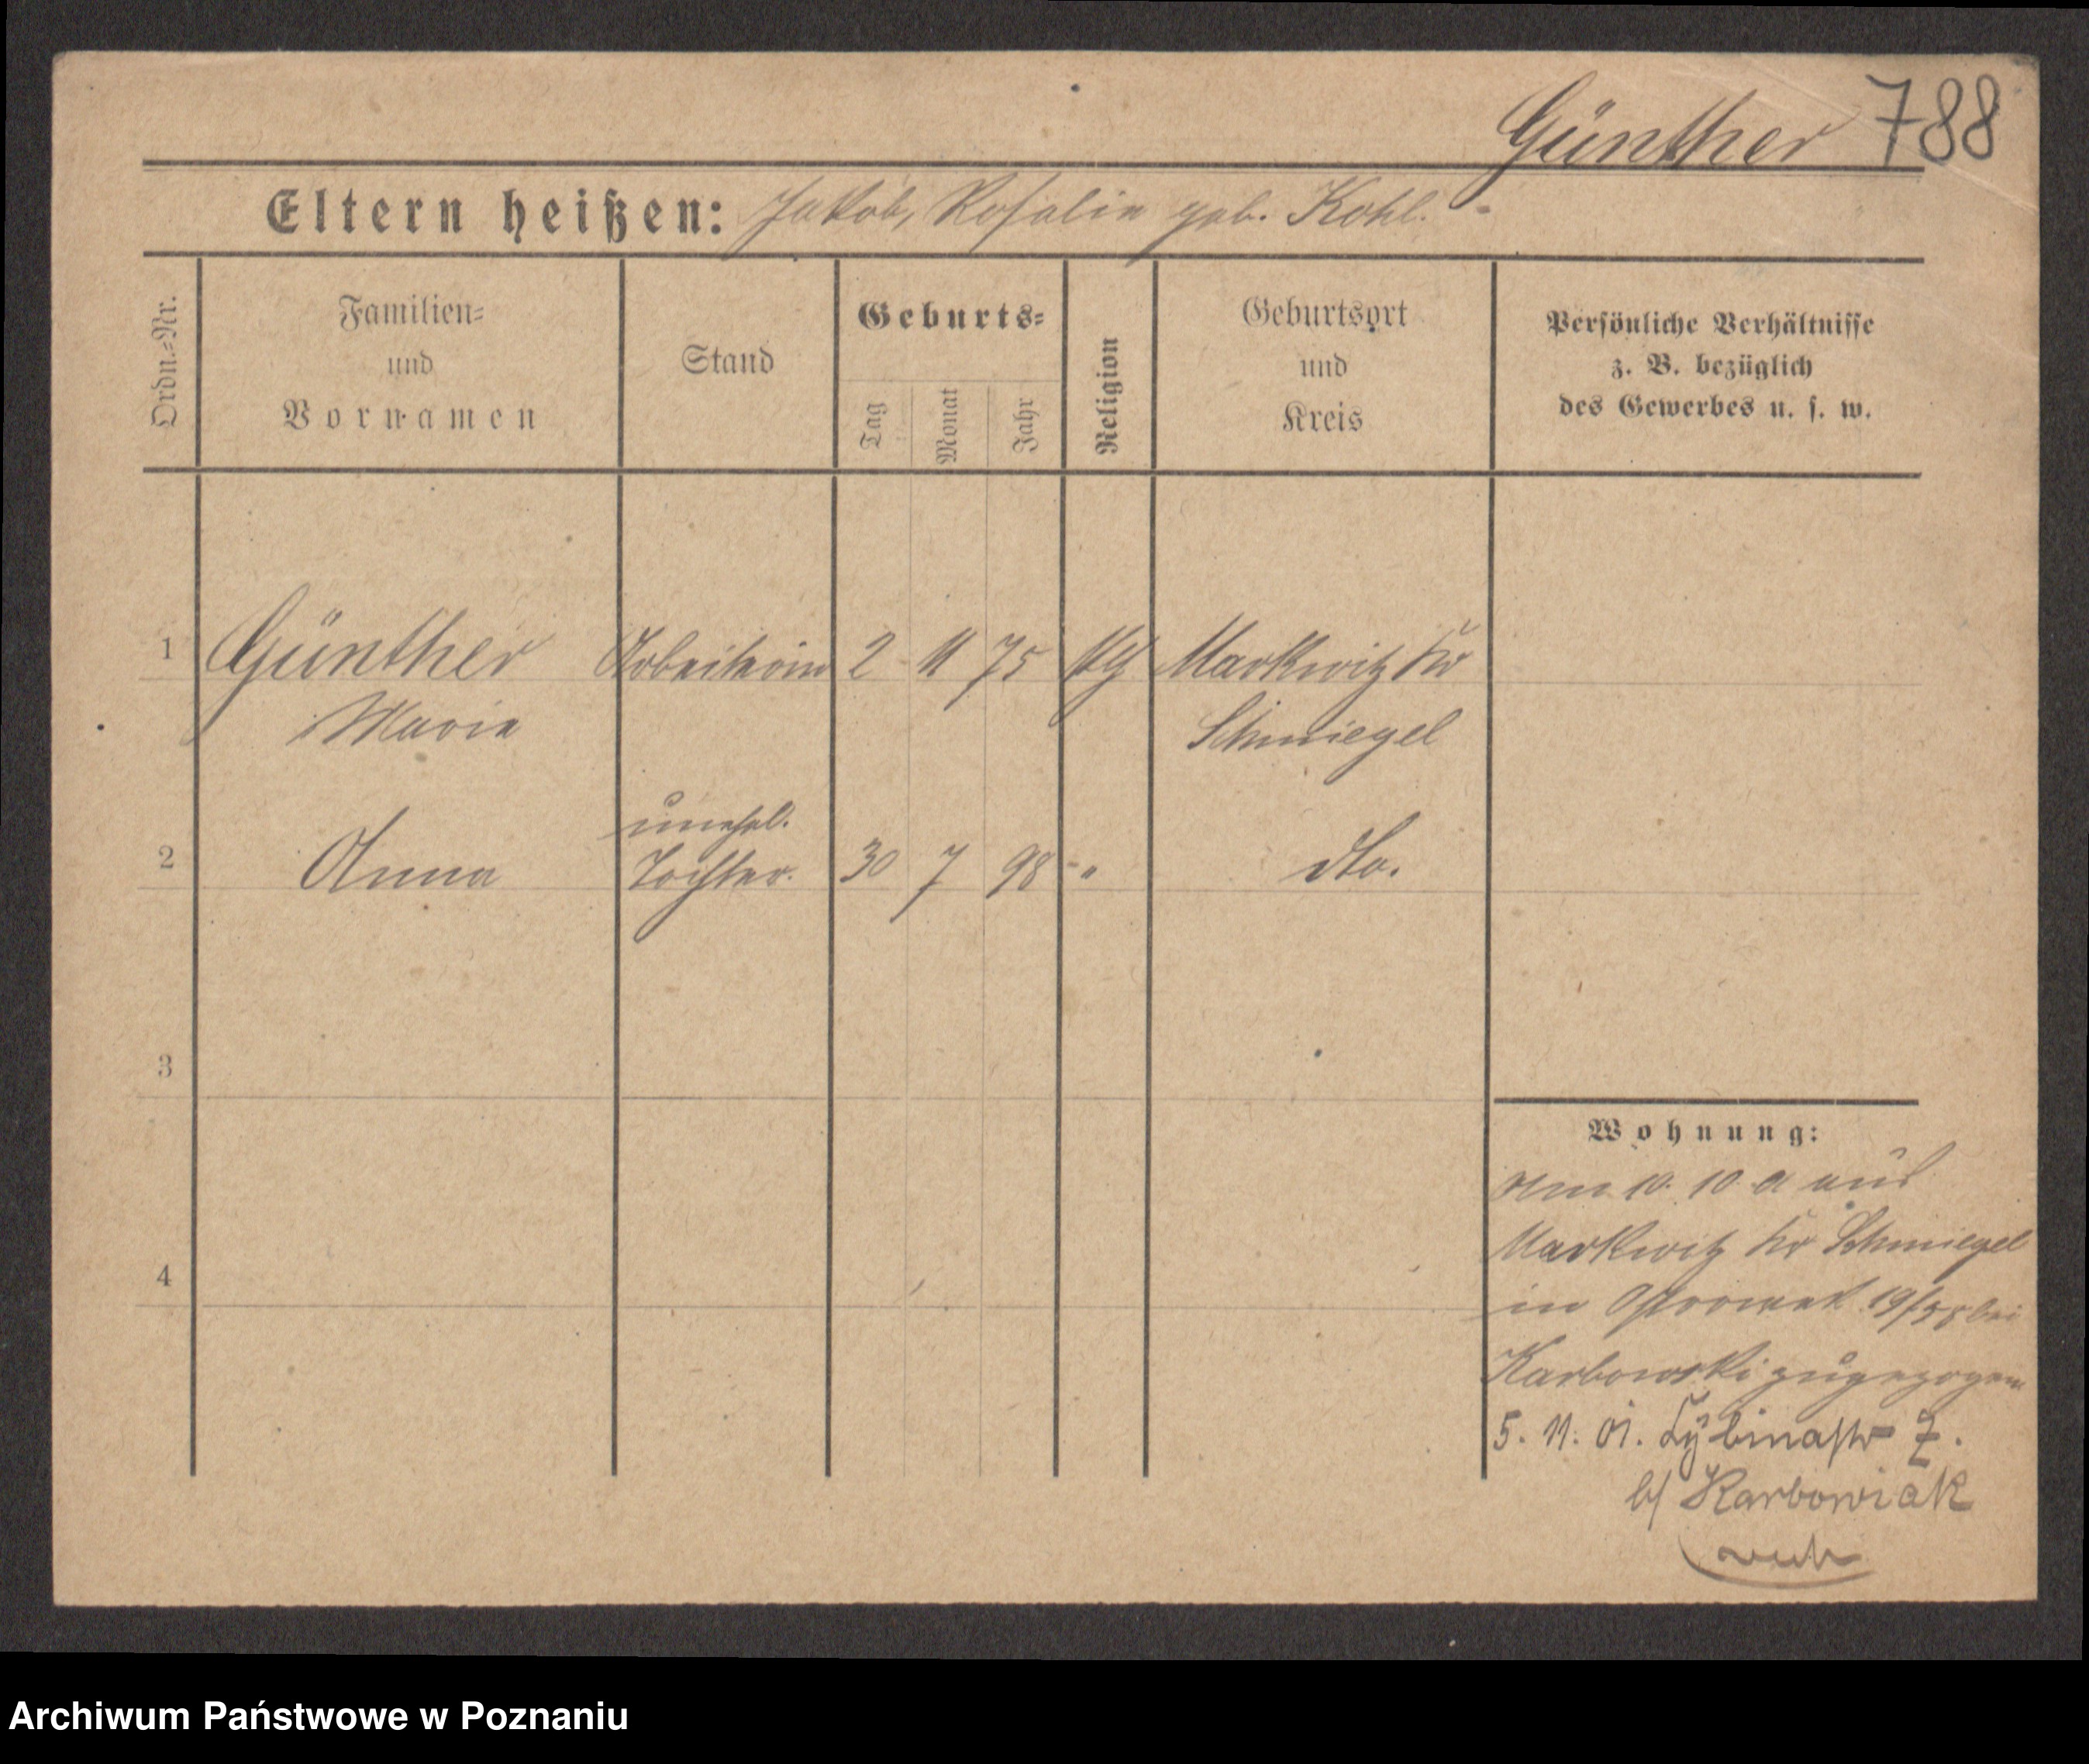 Günther 788
Eltern heißen: Jakob, Rosalie geb. Kohl.
Ordn.=Nr.
Familien=
und
Vornamen
Stand
Geburts=
Tag
Monat
Jahr
Religion
Geburtsort
und
Kreis
Persönliche Verhältnisse
z. B. bezüglich
des Gewerbes u. s. w.
1 Günther Arbeiterin 2 11 75 Markwitz Kr
Marie Schmiegel
unehel.
2 Anna Tochter. 30 7 98 " dto.
3
4
Wohnung:
Am 10. 10 a aus
Markwitz Kr Schmiegel
in Ostrowek 19/ bei
Karbowski zugezogen
5. 11. 01. Lybinastr
b/ Karbowiak
Archiwum Państwowe w Poznaniu